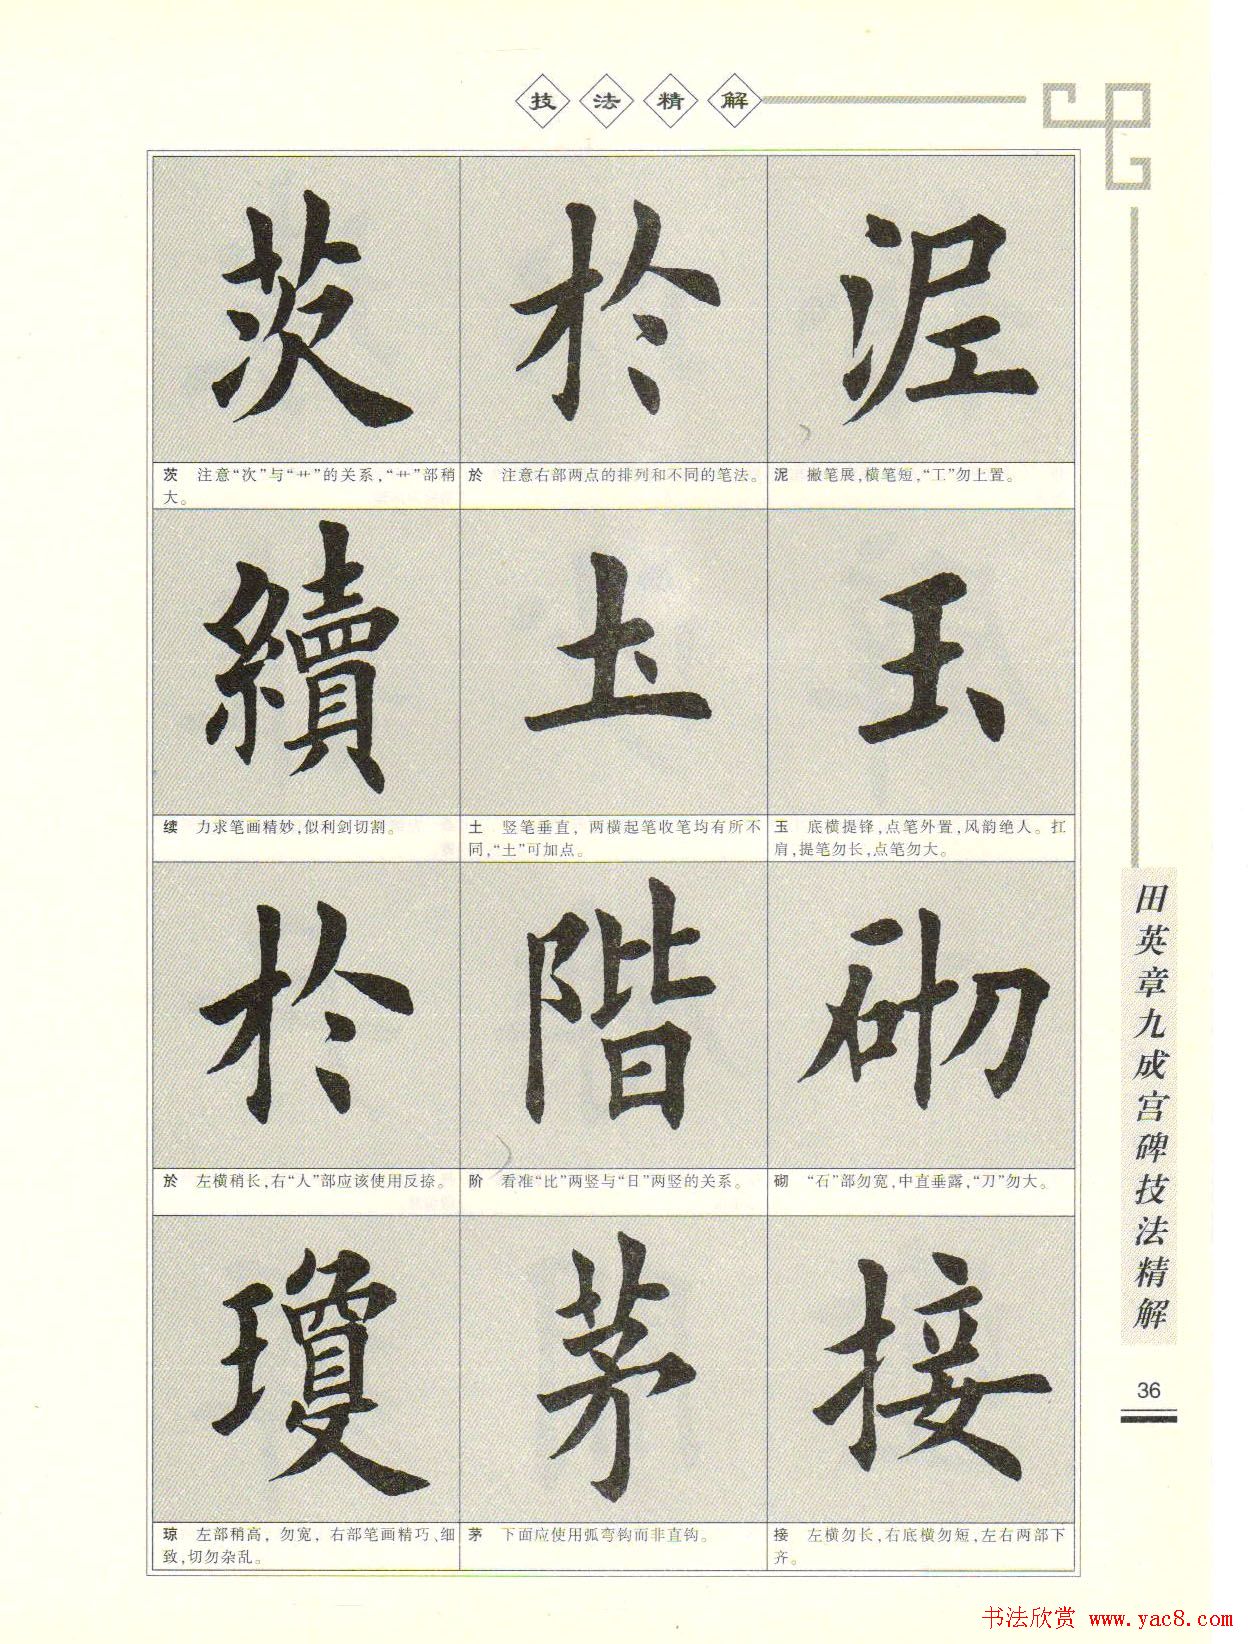 技法精解
茨 於 泥
茨 注意“次”与“艹”的关系,“艹”部稍
大。
於 注意右部两点的排列和不同的笔法。
泥 撇笔展,横笔短,“工”勿上置。
續 土 玉
续 力求笔画精妙,似利剑切割。
土 竖笔垂直, 两横起笔收笔均有所不
同,“土”可加点。
玉 底横提锋,点笔外置,风韵绝人。扛
肩,提笔勿长,点笔勿大。
於 階 砌
於 左横稍长,右“人”部应该使用反捺。
阶 看准“比”两竖与“日”两竖的关系。
砌 “石”部勿宽,中直垂露,“刀”勿大。
瓊 茅 接
琼 左部稍高, 勿宽, 右部笔画精巧、细
致,切勿杂乱。
茅 下面应使用弧弯钩而非直钩。
接 左横勿长,右底横勿短,左右两部下
齐。
田英章九成宫碑技法精解
36
书法欣赏 www.yac8.com